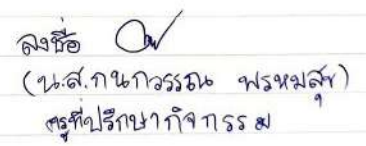 ลงชื่อ
(น.ส.กนกวรรณ พรหมสุข)
ครูที่ปรึกษากิจกรรม